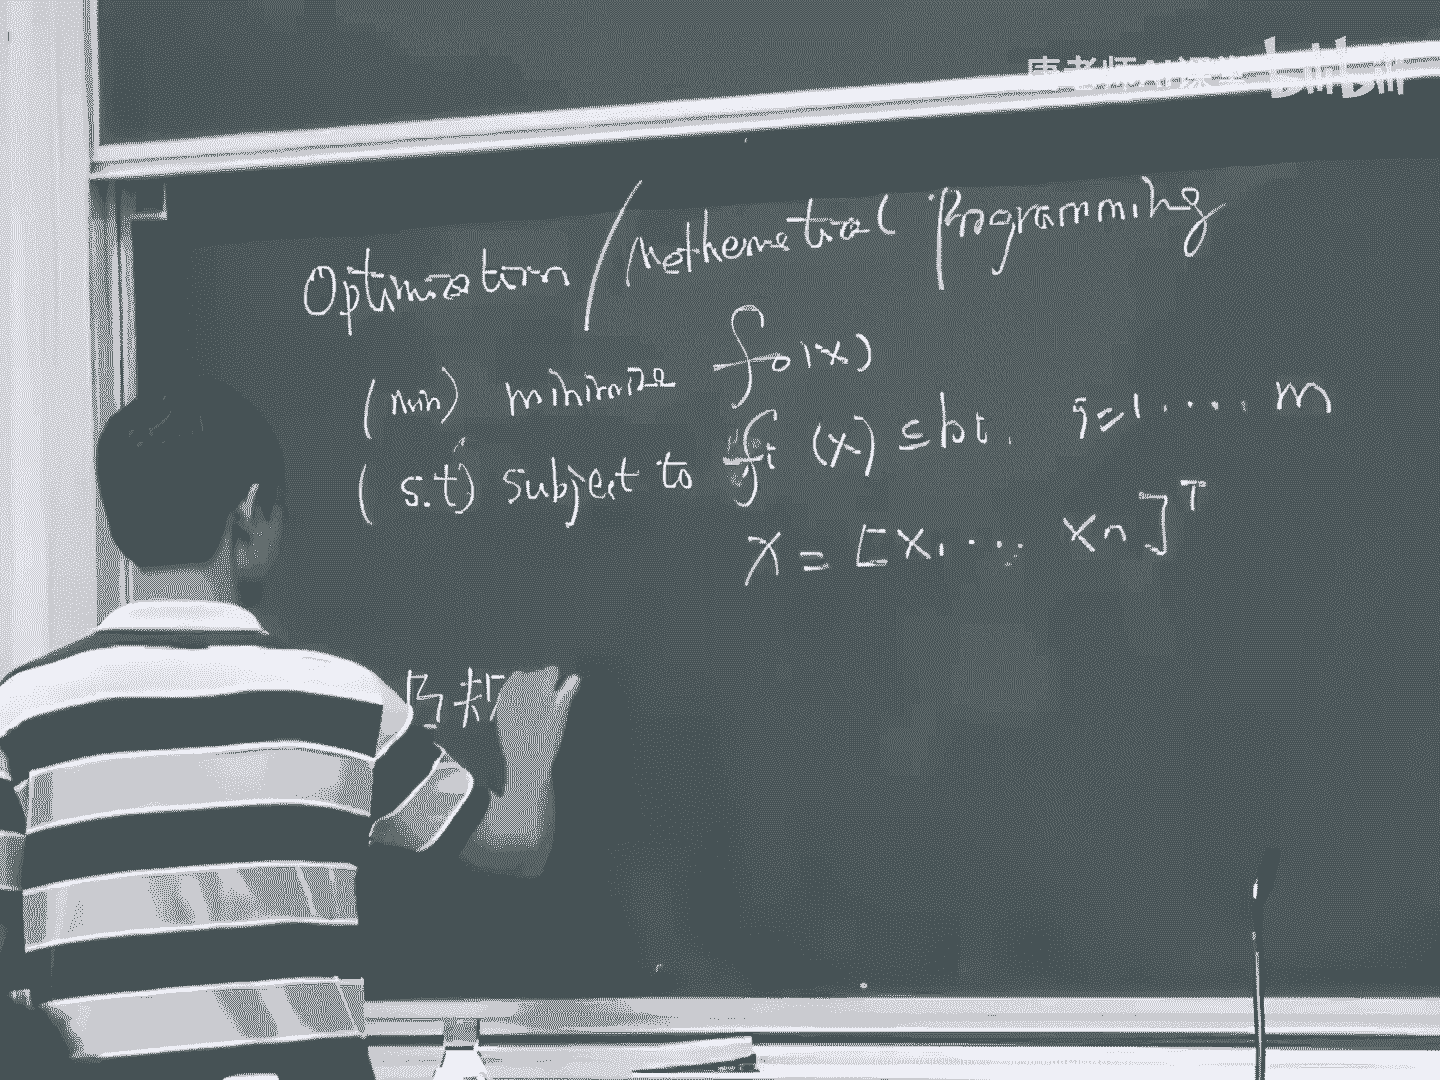 唐老师AI课堂 bilibili
Optimization / Mathematical Programming
(min) minimize f₀(x)
(s.t) subject to fᵢ(x) ≤ bᵢ. i=1.... m
X = [X₁ ... Xn]ᵀ